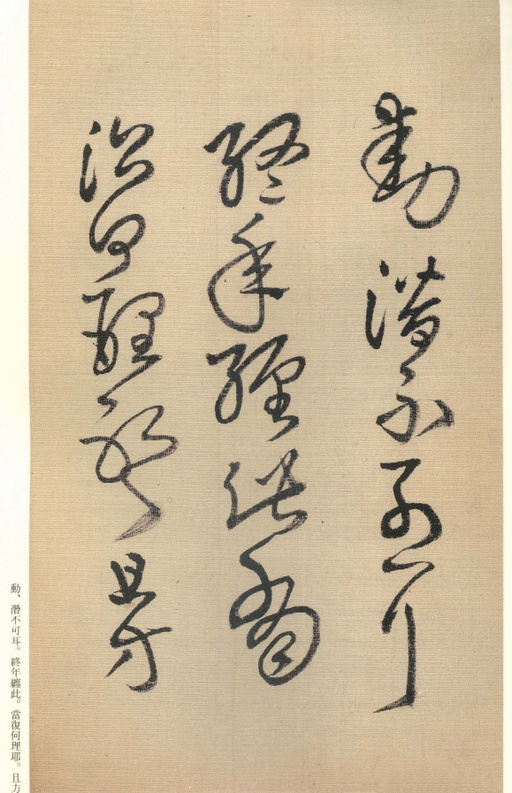 動潛不可耳
終年纏此當
復何理耶且方
動、潛不可耳。終年纏此。當復何理耶。且方